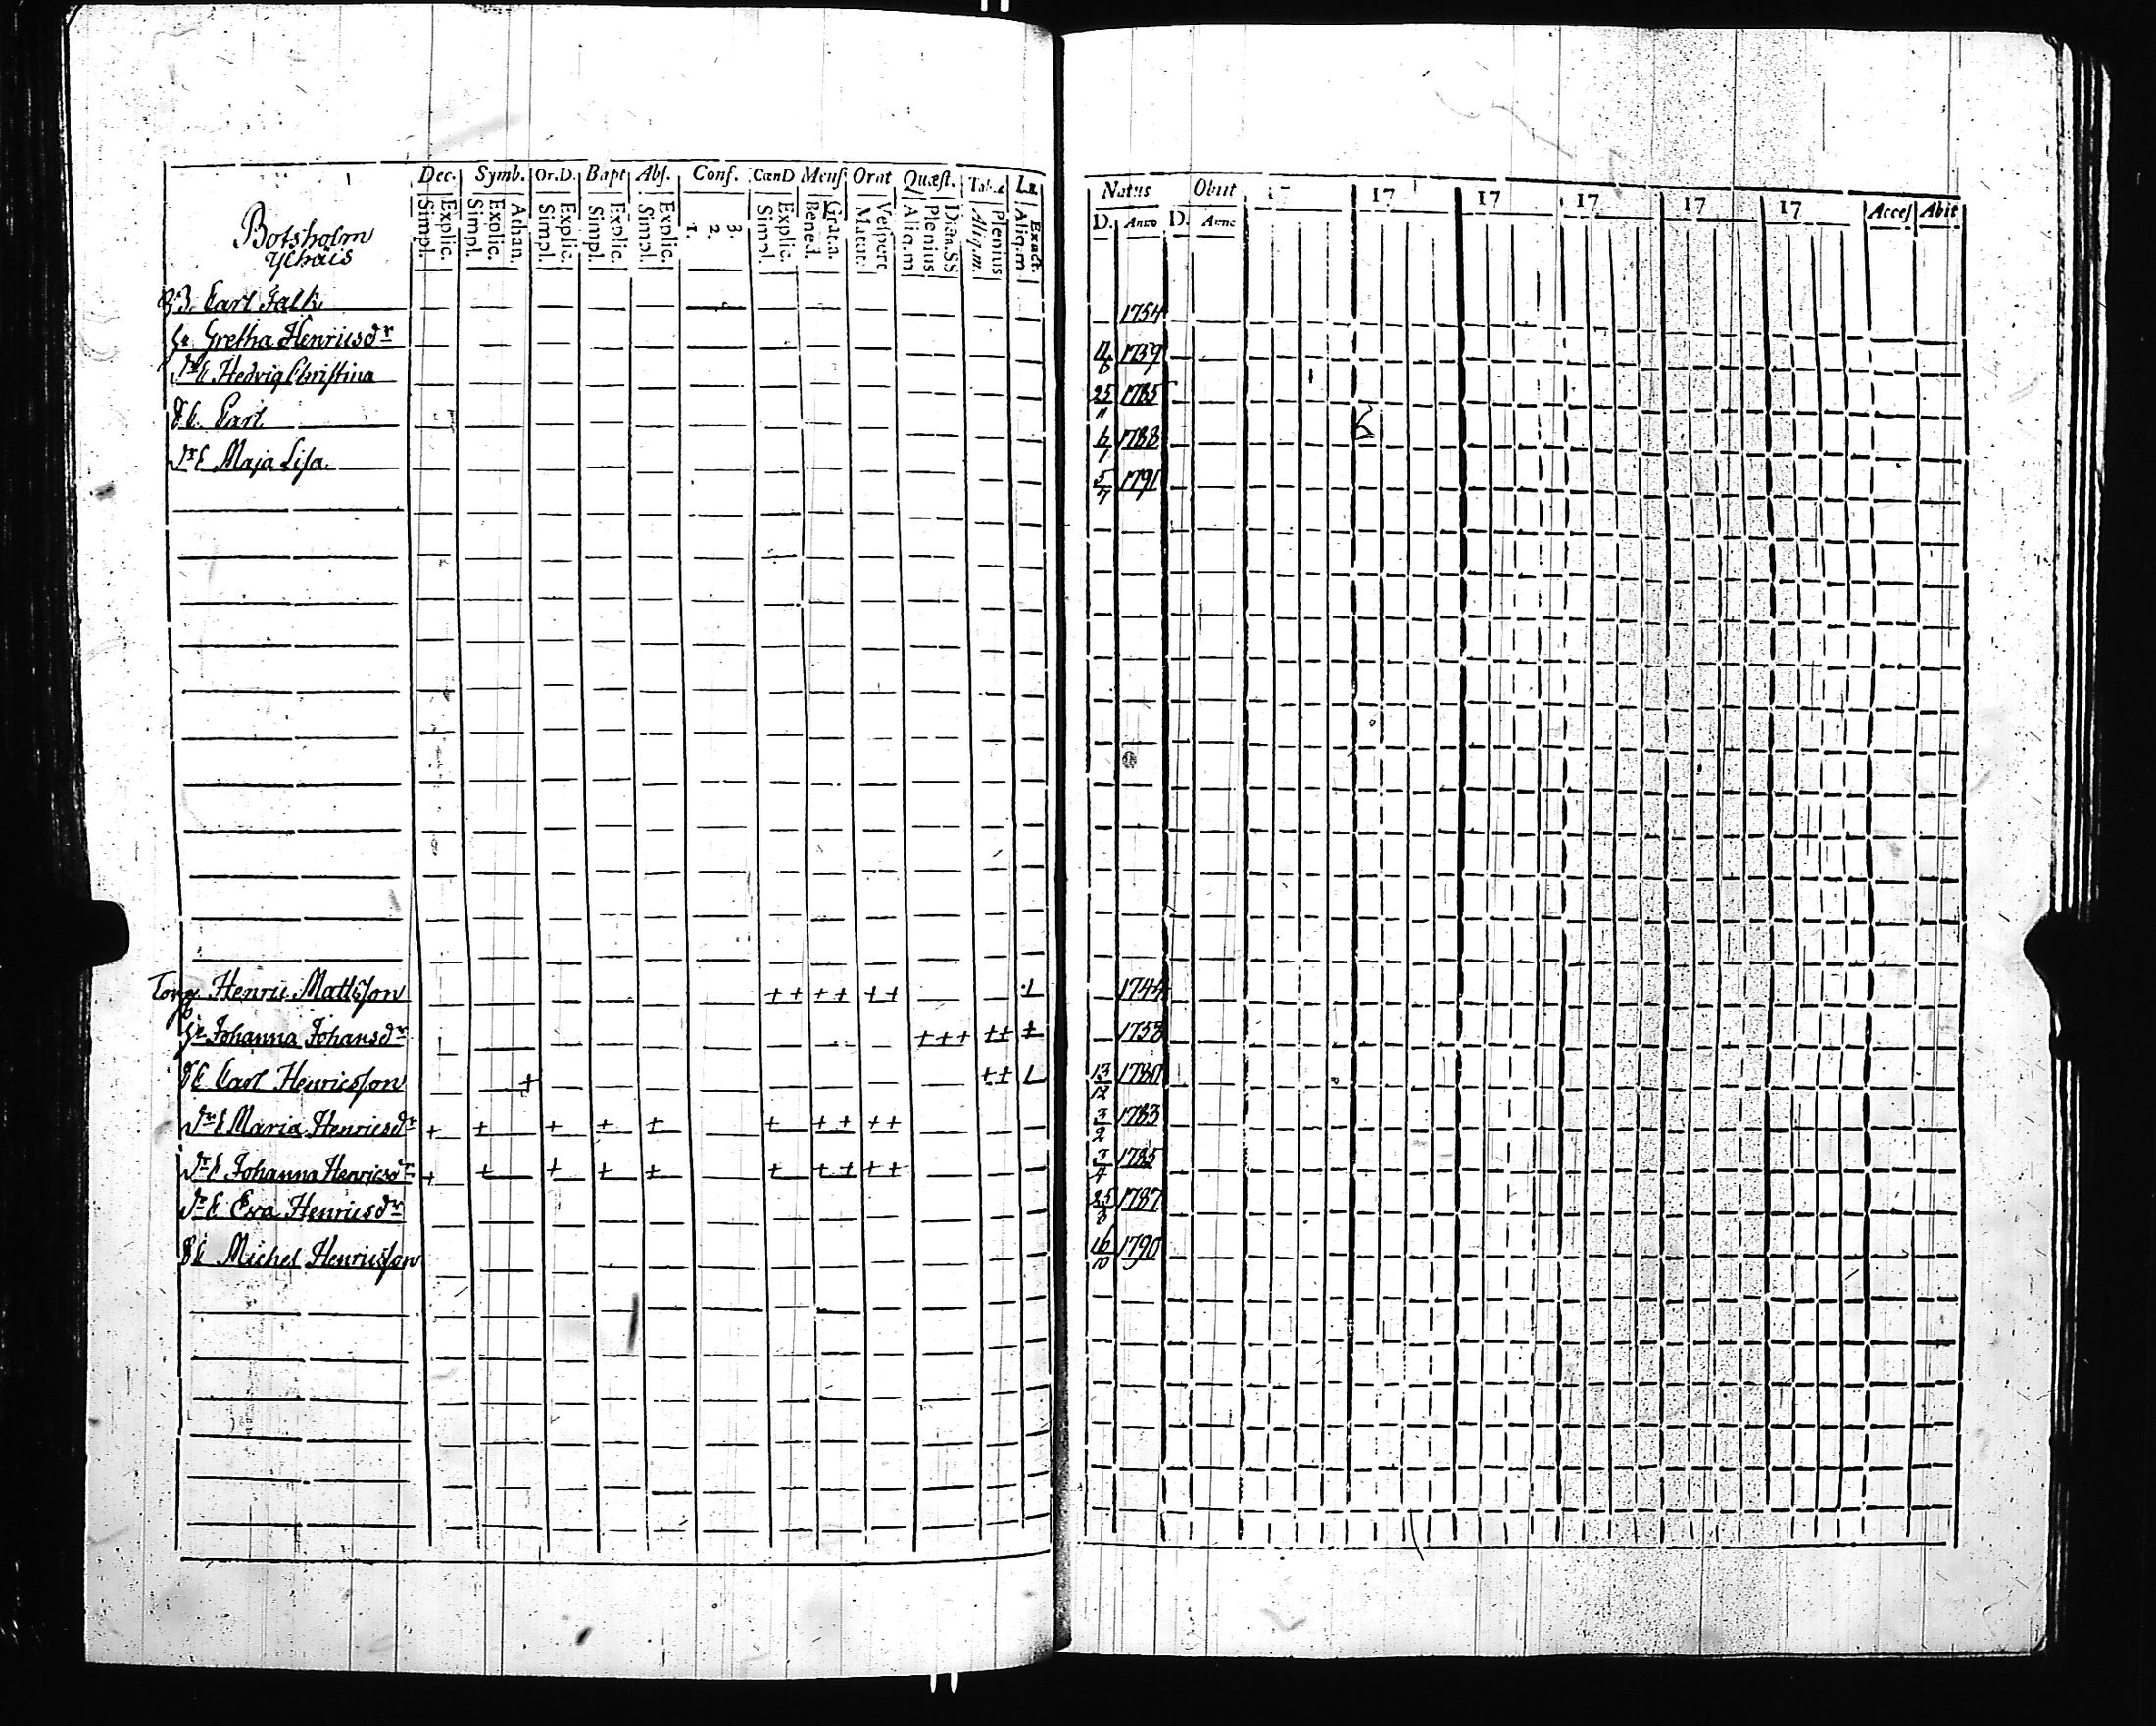 Dec. Symb. Or.D. Bapt Abs. Conf. CœnD Mens Orat Quæst.
Simpl. Explic. Simpl. Explic. Athan. Simpl. Explic. Simpl. Explic. Simpl. Explic. 1. 2. 3. Simpl. Explic. Bened. Vespere Aliq.m Plenius Aliq.m. Plenius Aliq.m Exact.
Natus Obiit 17 17 17 17 17 Acces Abit
D. Anno D. Anno
Botsholm
Carl Falk 1754
Gretha Henricsdr 1759
Hedvig Christina 25/11 1785
Carl 6/1 1788
Maja Lisa 5/7 1791
Torp Henric Mattsson ++ ++ ++ 1744
Johanna Johansdr +++ ++ + 1758
Carl Henricsson + ++ 13/12 1780
Maria Henricsdr + + + + + + ++ ++ 3/2 1783
Johanna Henricsdr + + + + + + ++ ++ 3/4 1785
Eva Henricsdr 25/8 1787
Michel Henricsson 16/10 1790